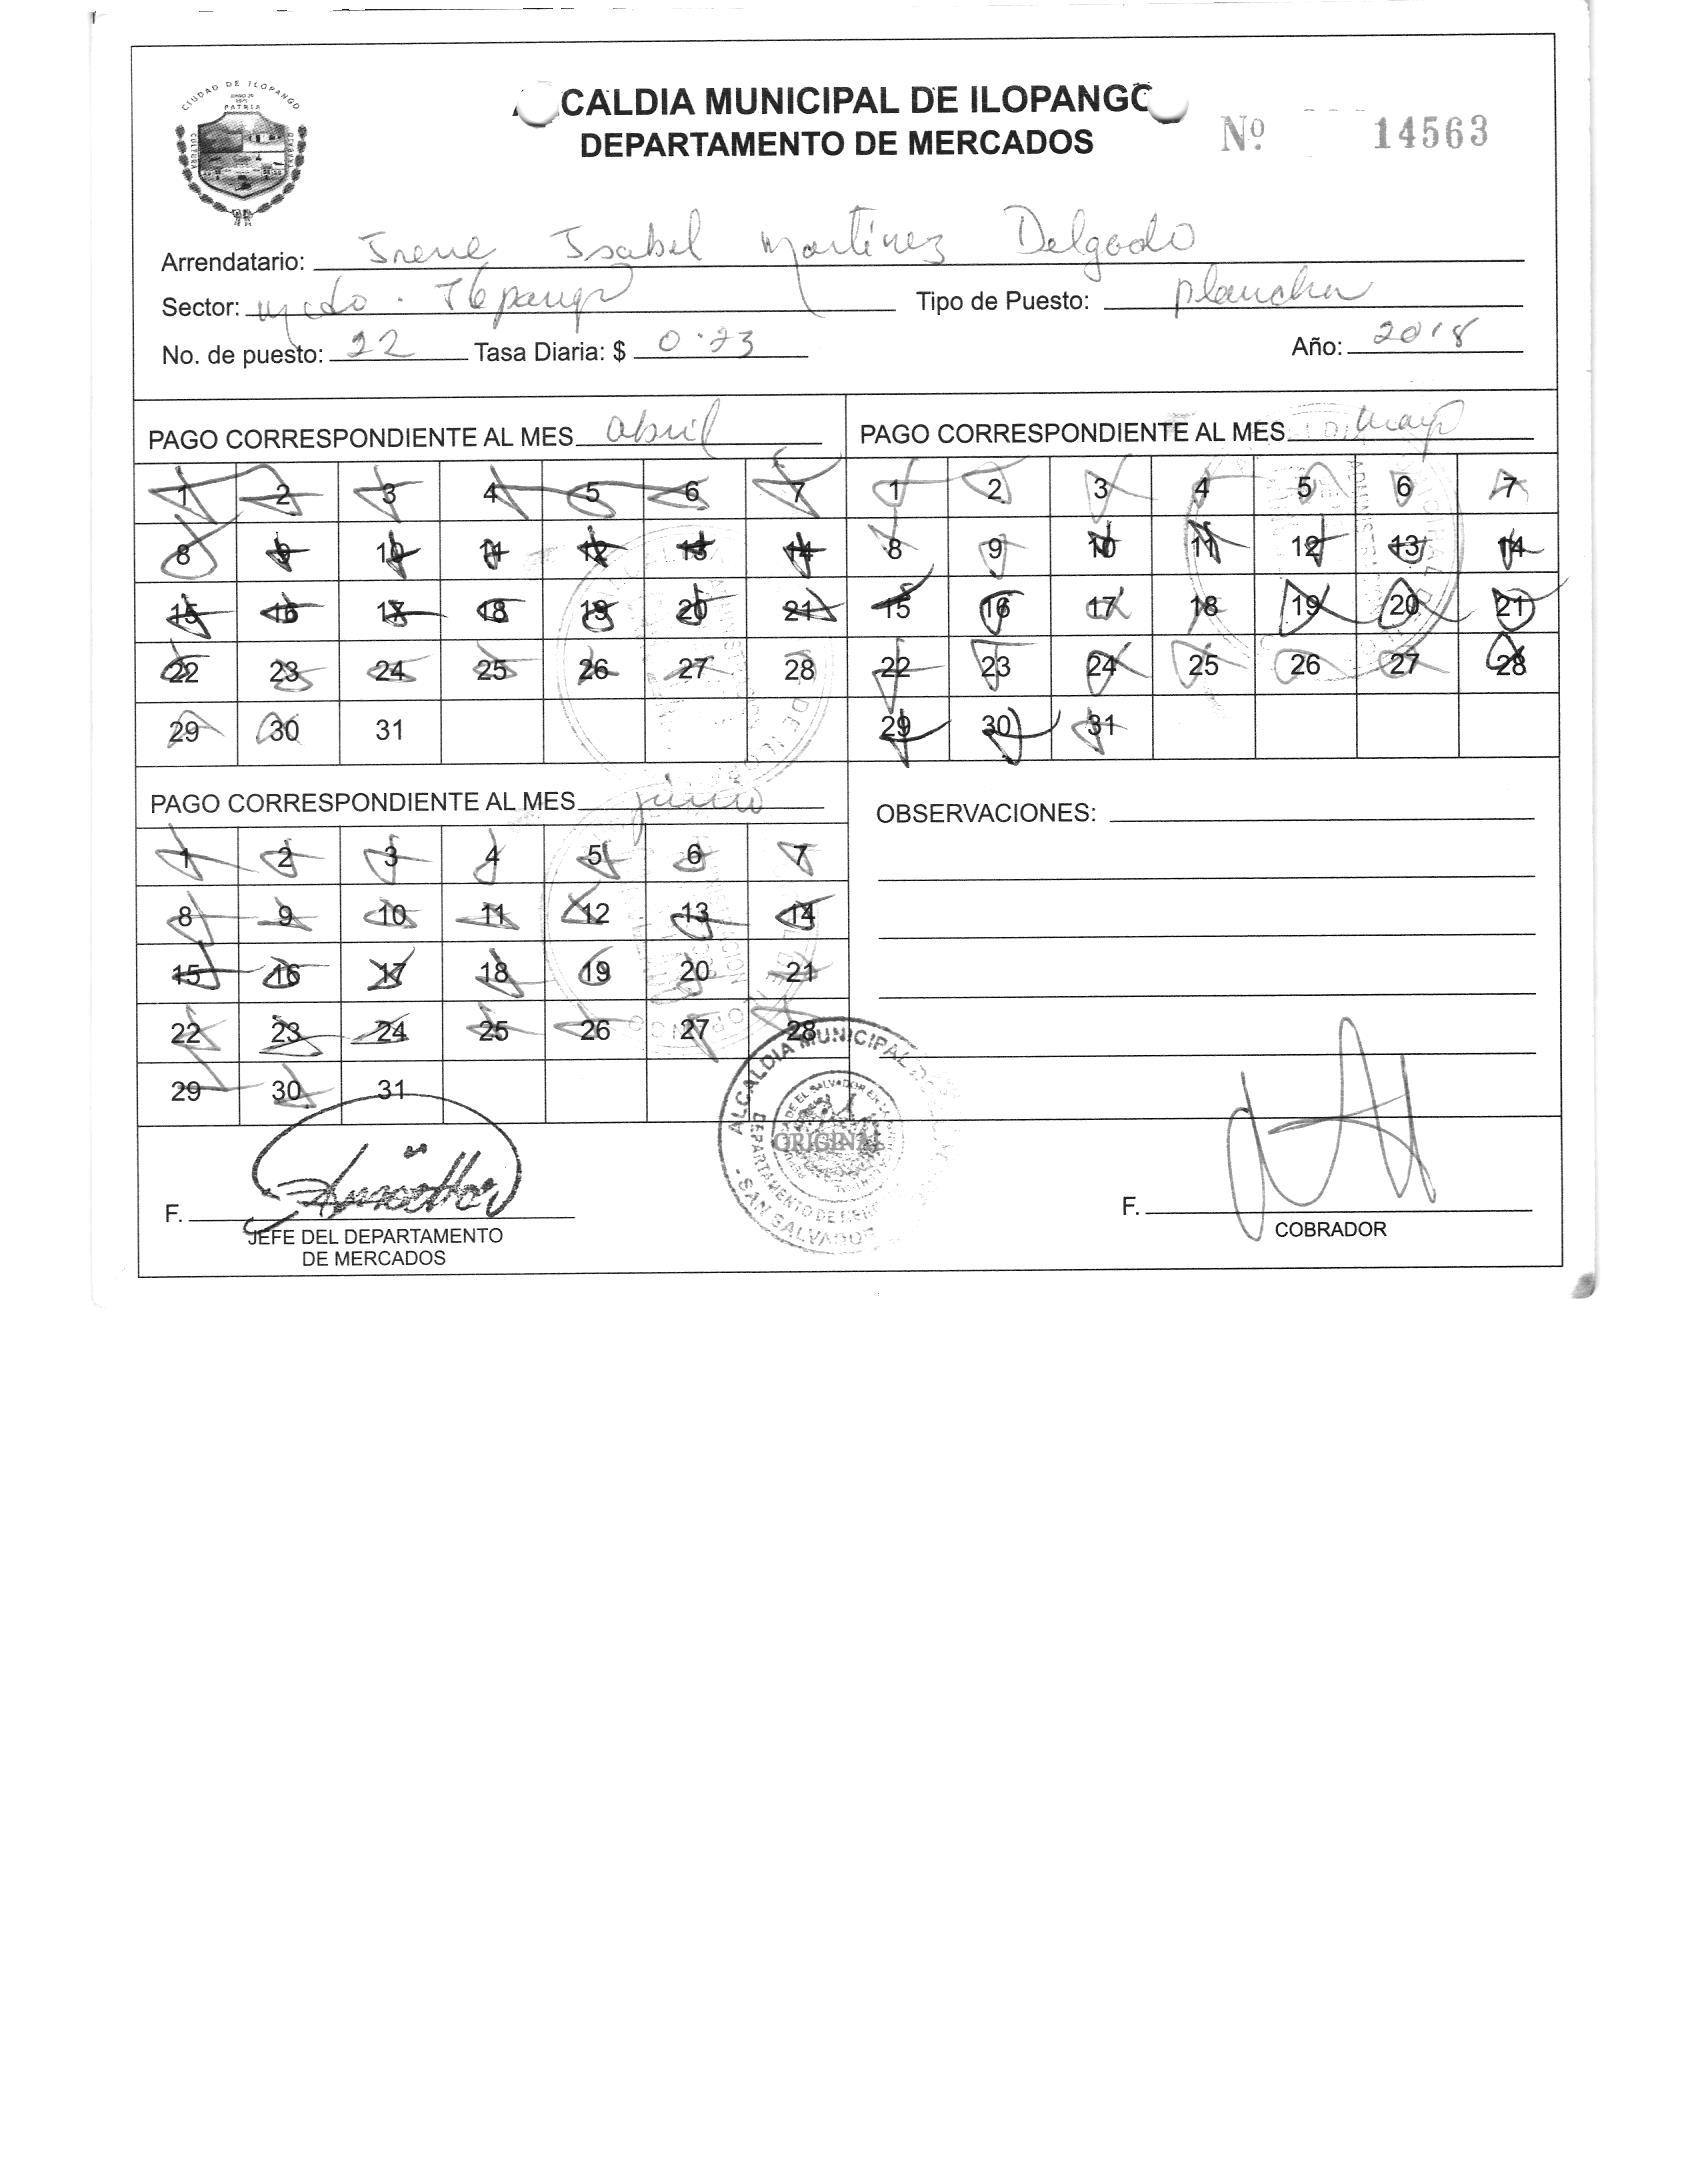 CIUDAD DE ILOPANGO
PATRIA
CULTURA
ALCALDIA MUNICIPAL DE ILOPANGO
DEPARTAMENTO DE MERCADOS
Nº 14563
Arrendatario: Irene Isabel Martínez Delgado
Sector: mcdo. Ilopango Tipo de Puesto: plancha
No. de puesto: 22 Tasa Diaria: $ 0.23 Año: 2018
PAGO CORRESPONDIENTE AL MES abril
1 2 3 4 5 6 7
8 9 10 11 12 13 14
15 16 17 18 19 20 21
22 23 24 25 26 27 28
29 30 31
PAGO CORRESPONDIENTE AL MES mayo
1 2 3 4 5 6 7
8 9 10 11 12 13 14
15 16 17 18 19 20 21
22 23 24 25 26 27 28
29 30 31
PAGO CORRESPONDIENTE AL MES junio
1 2 3 4 5 6 7
8 9 10 11 12 13 14
15 16 17 18 19 20 21
22 23 24 25 26 27 28
29 30 31
OBSERVACIONES:
ALCALDIA MUNICIPAL
DEPARTAMENTO DE
SAN SALVADOR
ORIGINAL
F.
JEFE DEL DEPARTAMENTO
DE MERCADOS
F.
COBRADOR